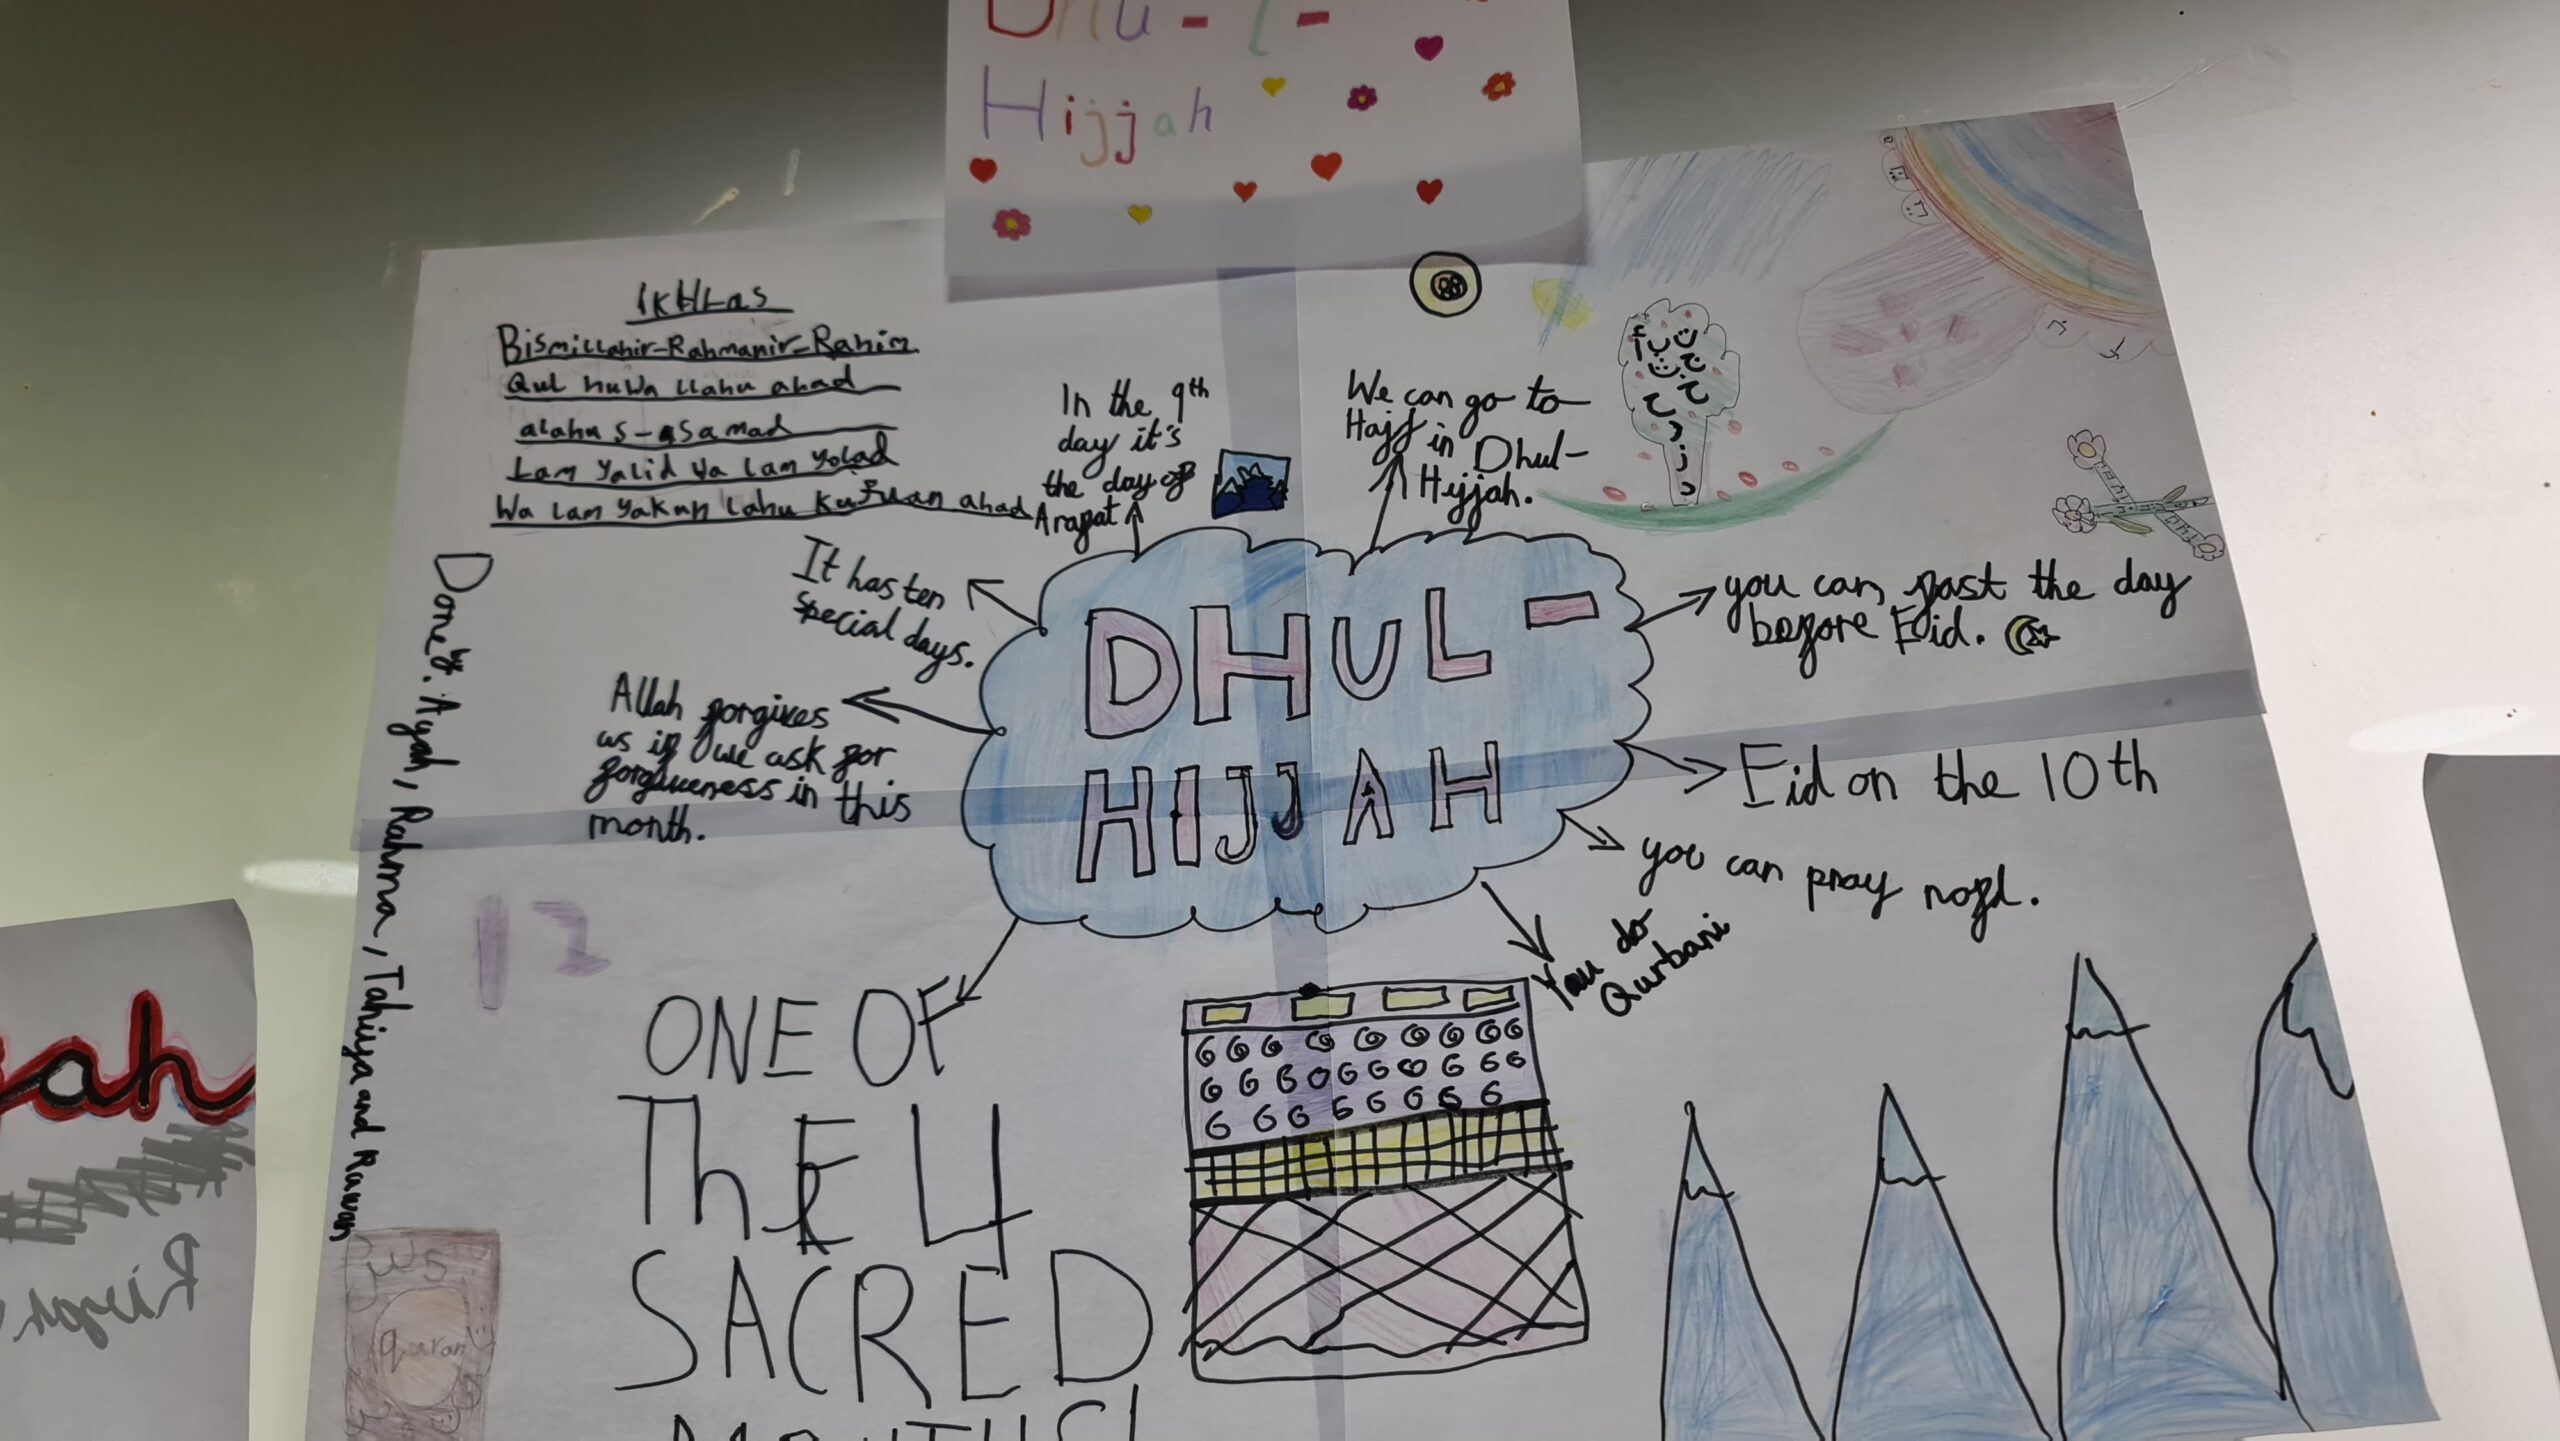 Dhu-l-
Hijjah
IKHLas
Bismillahir-Rahmanir-Rahim
Qul huwa llahu ahad
alahu s-asamad
Lam yalid wa lam yolad
Wa lam yakun lahu kufuan ahad
In the 9th
day it's
the day of
Arafat
We can go to
Hajj in Dhul-
Hijjah.
أ ب ت
ث ج
ح خ
د
ذ
ر
ز
It has ten
special days.
you can fast the day
before Eid.
DHUL-
HIJJAH
Allah forgives
us if we ask for
forgiveness in this
month.
Eid on the 10th
you can pray nafl.
You do
Qurbani
Done by: Ayah, Rahma, Tahiya and Rawan
12
ONE OF
ThE 4
SACRED
MONTHS!
quran
jah